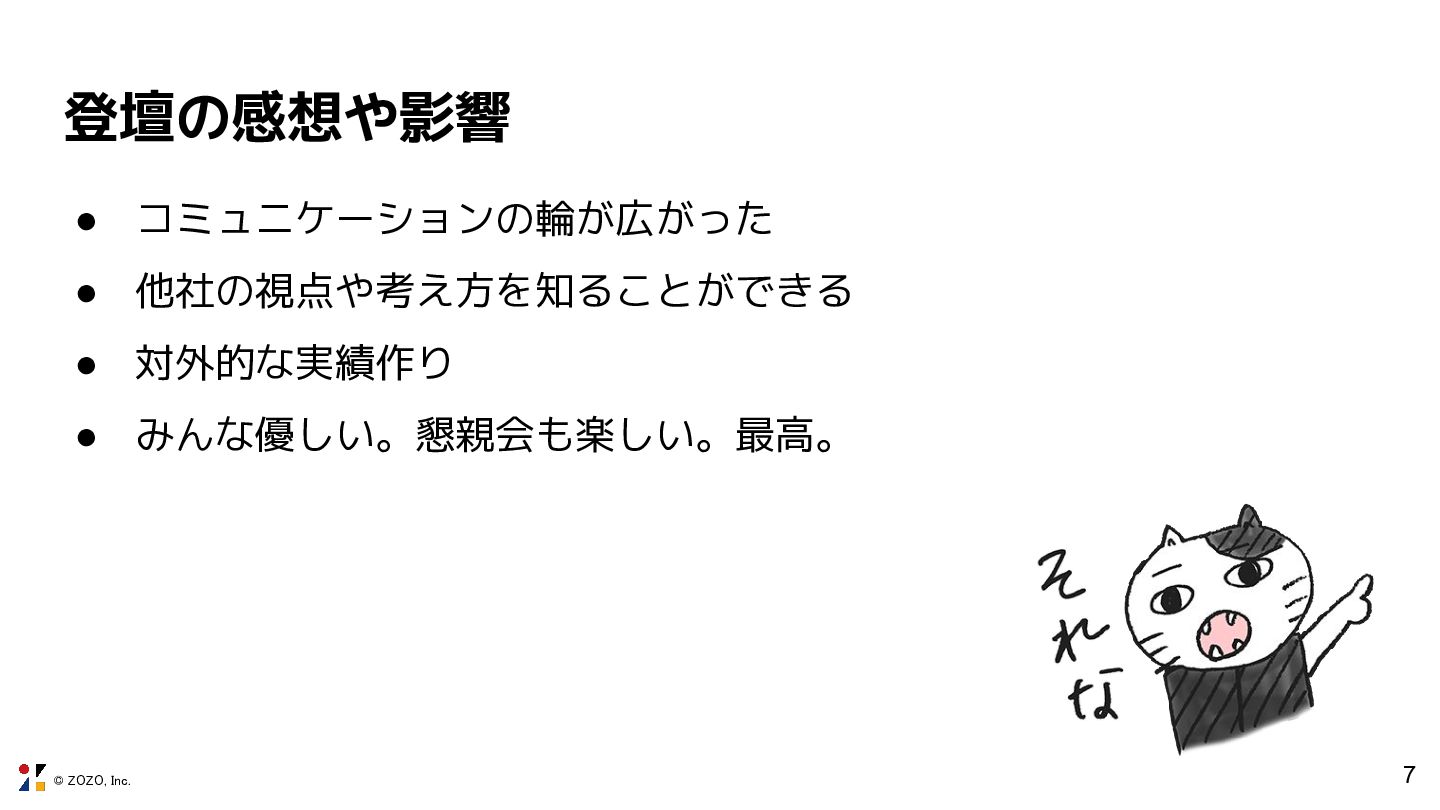 登壇の感想や影響
● コミュニケーションの輪が広がった
● 他社の視点や考え方を知ることができる
● 対外的な実績作り
● みんな優しい。懇親会も楽しい。最高。
それな
© ZOZO, Inc.
7